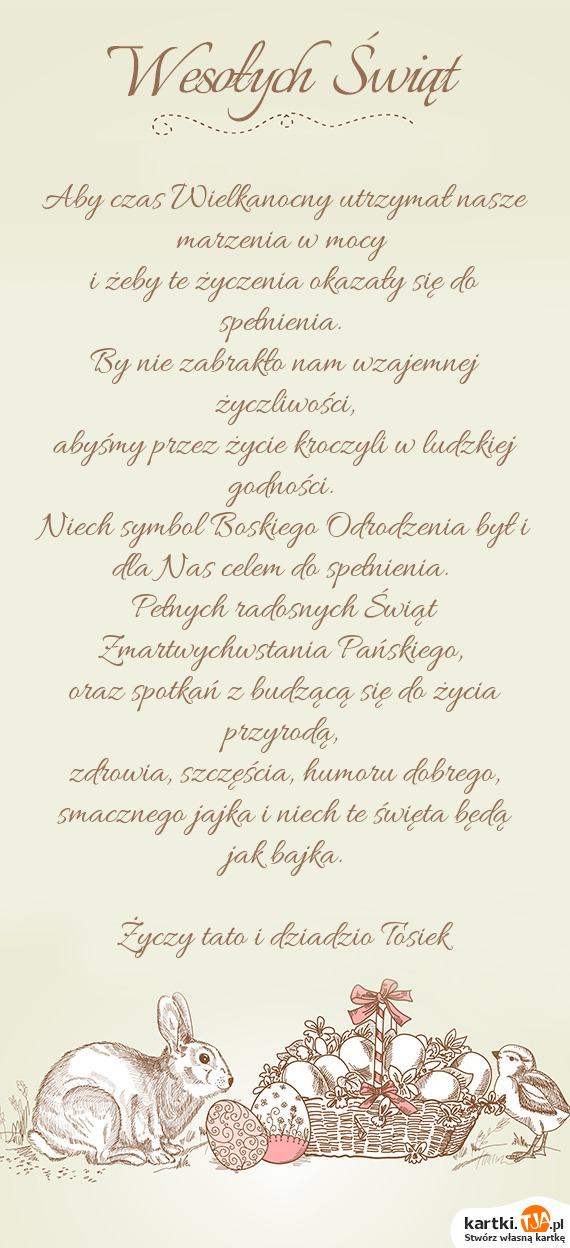 Wesołych Świąt
Aby czas Wielkanocny utrzymał nasze
marzenia w mocy
i żeby te życzenia okazały się do
spełnienia.
By nie zabrakło nam wzajemnej
życzliwości,
abyśmy przez życie kroczyli w ludzkiej
godności.
Niech symbol Boskiego Odrodzenia był i
dla Nas celem do spełnienia.
Pełnych radosnych Świąt
Zmartwychwstania Pańskiego,
oraz spotkań z budzącą się do życia
przyrodą,
zdrowia, szczęścia, humoru dobrego,
smacznego jajka i niech te święta będą
jak bajka.
Życzy tato i dziadzio Tosiek
kartki.TJA.pl
Stwórz własną kartkę